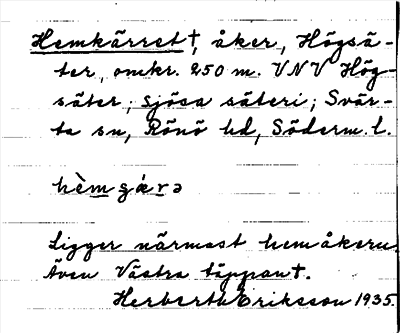 Hemkärret†, åker, Högsä-
ter, omkr. 250 m. VNV Hög-
säter; Sjösa säteri; Svär-
ta sn, Rönö hd, Söderm. l.
Ligger närmast hemåkern.
Även Västra täppan†.
Herbert Eriksson 1935.